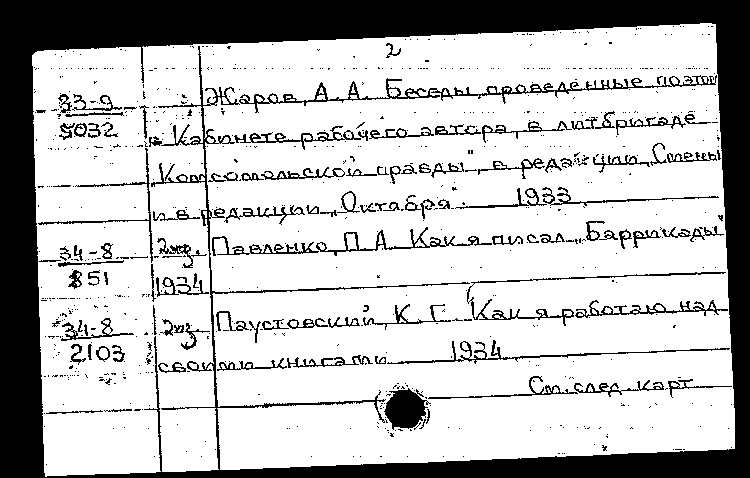 2
33-9 Жаров, А. А. Беседы, проведенные поэтом
5032 в Кабинете рабочего автора, в литбригаде
„Комсомольской правды", в редакции „Смены"
и в редакции „Октября". 1933
34-8 2 экз. Павленко, П. А. Как я писал „Баррикады"
851 1934
34-8 2 экз. Паустовский, К. Г. Как я работаю над
2103 своими книгами 1934
См. след. карт.